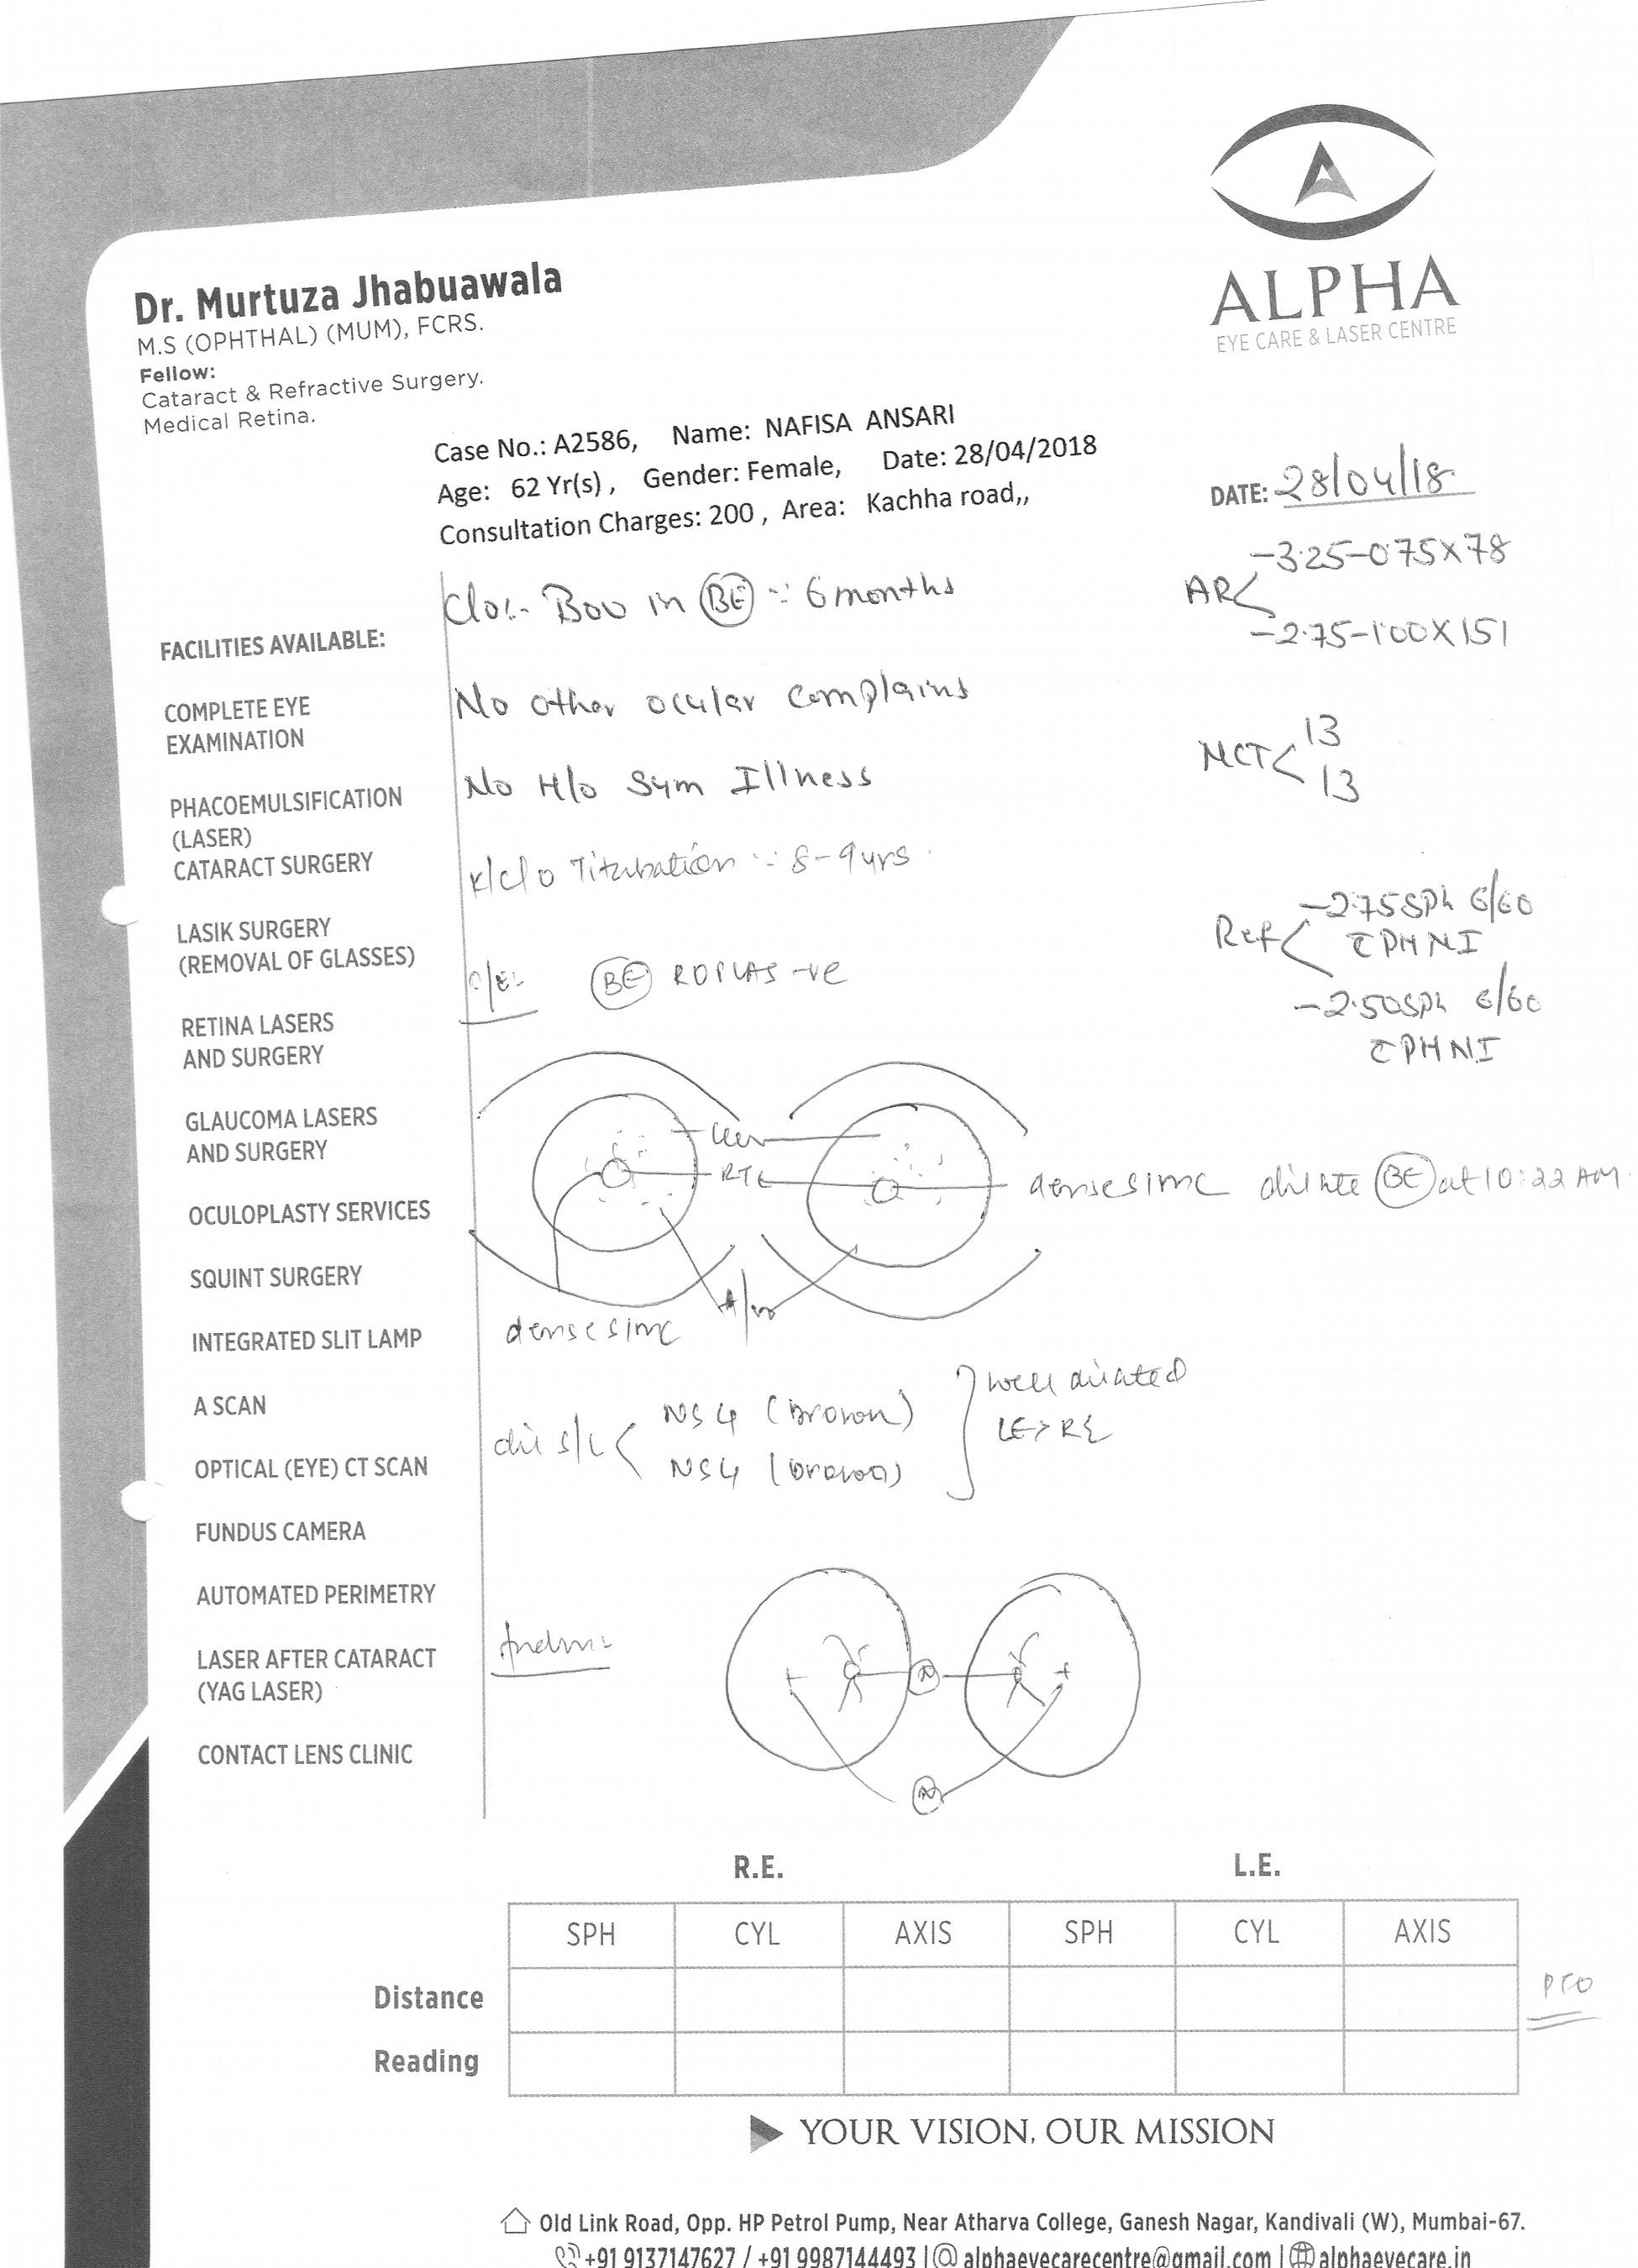 Dr. Murtuza Jhabuawala
M.S (OPHTHAL) (MUM), FCRS.
Fellow:
Cataract & Refractive Surgery.
Medical Retina.
ALPHA
EYE CARE & LASER CENTRE
Case No.: A2586, Name: NAFISA ANSARI
Age: 62 Yr(s) , Gender: Female, Date: 28/04/2018
Consultation Charges: 200 , Area: Kachha road,,
DATE: 28/04/18
AR< -3.25-0.75X78
-2.75-1.00X151
NCT< 13
13
Ref< -2.75SPh 6/60
C̄ PHNI
-2.50SPh 6/60
C̄ PHNI
C/o:- BOV in BE ∵ 6 months
No other ocular complains
No H/o Sym Illness
K/c/o Titubation ∵ 8-9yrs
O/E:
BE ROPLAS -ve
RTL
dense simc dilate BE at 10:22 AM
dense simc
dil s/L< NS4 (brown)
NS4 (brown)
well dilated
LE>RE
fundus
N
N
FACILITIES AVAILABLE:
COMPLETE EYE
EXAMINATION
PHACOEMULSIFICATION
(LASER)
CATARACT SURGERY
LASIK SURGERY
(REMOVAL OF GLASSES)
RETINA LASERS
AND SURGERY
GLAUCOMA LASERS
AND SURGERY
OCULOPLASTY SERVICES
SQUINT SURGERY
INTEGRATED SLIT LAMP
A SCAN
OPTICAL (EYE) CT SCAN
FUNDUS CAMERA
AUTOMATED PERIMETRY
LASER AFTER CATARACT
(YAG LASER)
CONTACT LENS CLINIC
R.E. L.E.
SPH CYL AXIS SPH CYL AXIS
Distance
Reading
PTO
YOUR VISION, OUR MISSION
Old Link Road, Opp. HP Petrol Pump, Near Atharva College, Ganesh Nagar, Kandivali (W), Mumbai-67.
+91 9137147627 / +91 9987144493 | alphaeyecarecentre@gmail.com | alphaeyecare.in